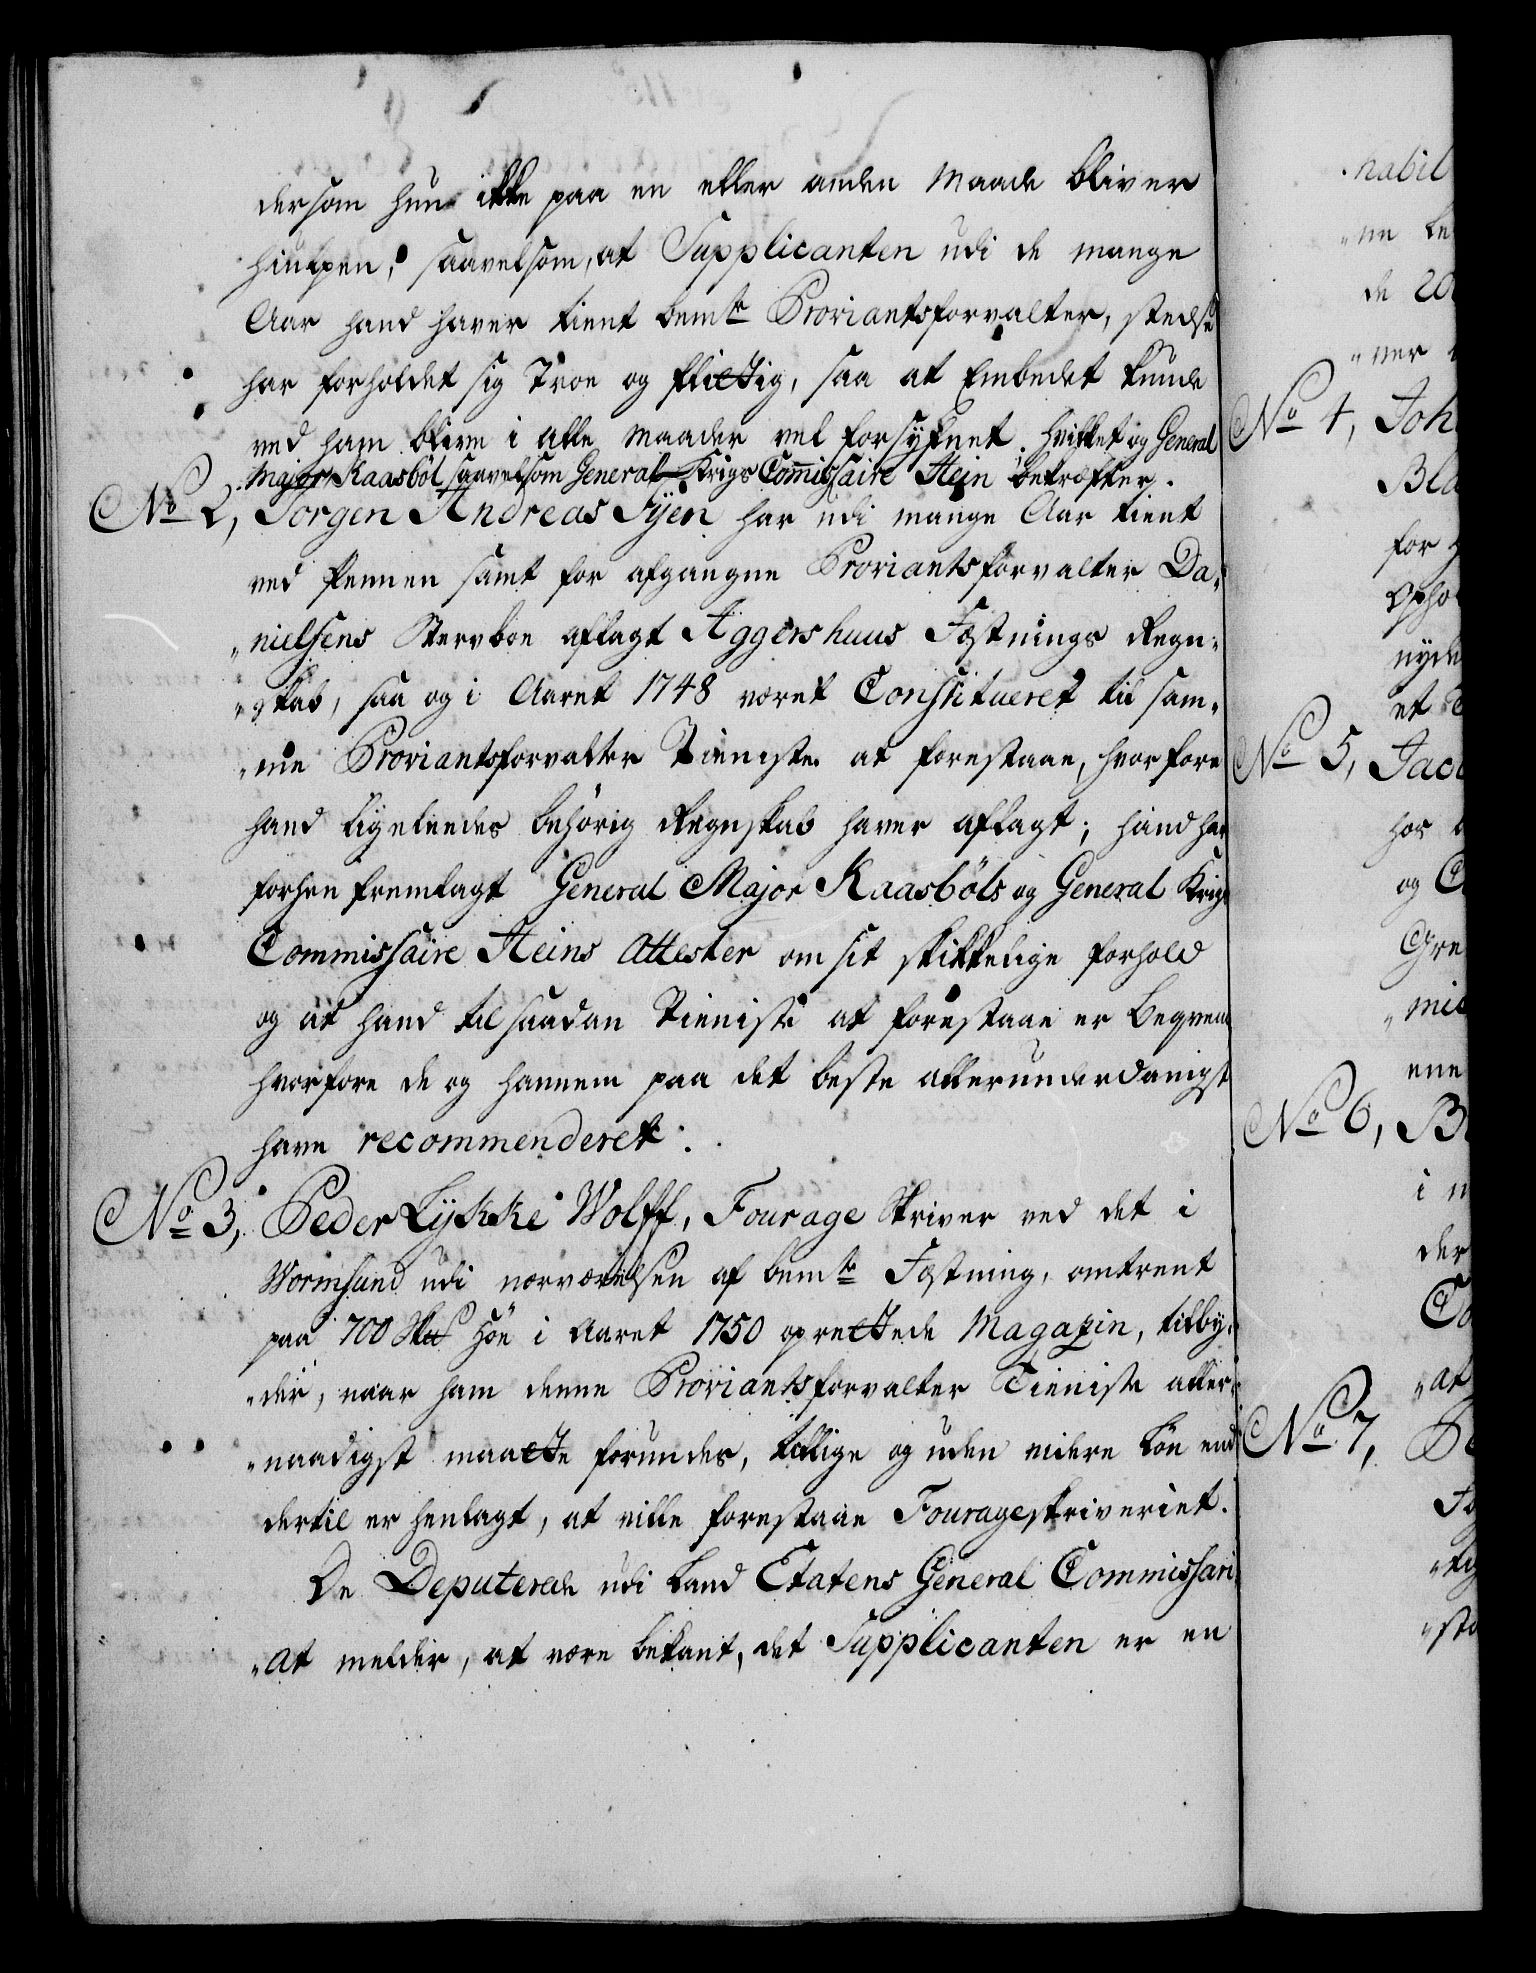 dersom hun ikke paa en eller anden Maade bliver
hiulpen, saavelsom, at Supplicanten udi de mange
Aar hand haver tient bemte Proviantsforvalter, stedse
har forholdet sig Troe og flictig, saa at Embedet kunde
ved ham blive i alle maader vel forsÿknet. Hvilket og General
Major Kaasböl saavelsom General Krigs Commissaire Stein bekræfter.
No 2, Jorgen Andreas Fÿen har udi mange Aar tient
ved Pennen samt for afgangne Proviantsforvalter Da-
nielsens Stervboe aflagt Aggershuus Fæstnings Regn-
skab, saa og i Aaret 1748 været Constitueret til sam-
me Proviantsforvalter Tieniste at forestaae, hvorfore
hand ligeledes behörig Regnskab haver aflagt; hand har
forhen fremlagt General Major Kaasböls og General Krigs
Commissaire Steins Attester om sit skikkelige forhold
og at hand til saadan Tieniste at forestaae er beqvem
hvorfore de og hannem paa det beste allerunderdanigst
have recommenderet.
No 3, Peder Lÿkke Wolff, Fourage Skriver ved det i
Wormsund udi nærværelsen af bemte Fæstning, omtrent
paa 700 Sk℔ Höe i Aaret 1750 oprettede Magazin, tilby-
der, naar ham denne Proviantsforvalter Tieniste aller-
naadigst maatte forundes, tillige og uden videre Lön end
dertil er henlagt, at ville forestaae Fourageskriveriet.
De Deputerede udi Land Etatens General Commissari-
at melder, at være bekant, det Supplicanten er en
nabil
de 20
No 4, Joh
Bla
for
opho
nyde
et
No 5, Jac
hos
og
Gre
mis
ene
No 6, B
i
der
Co
at
No 7,